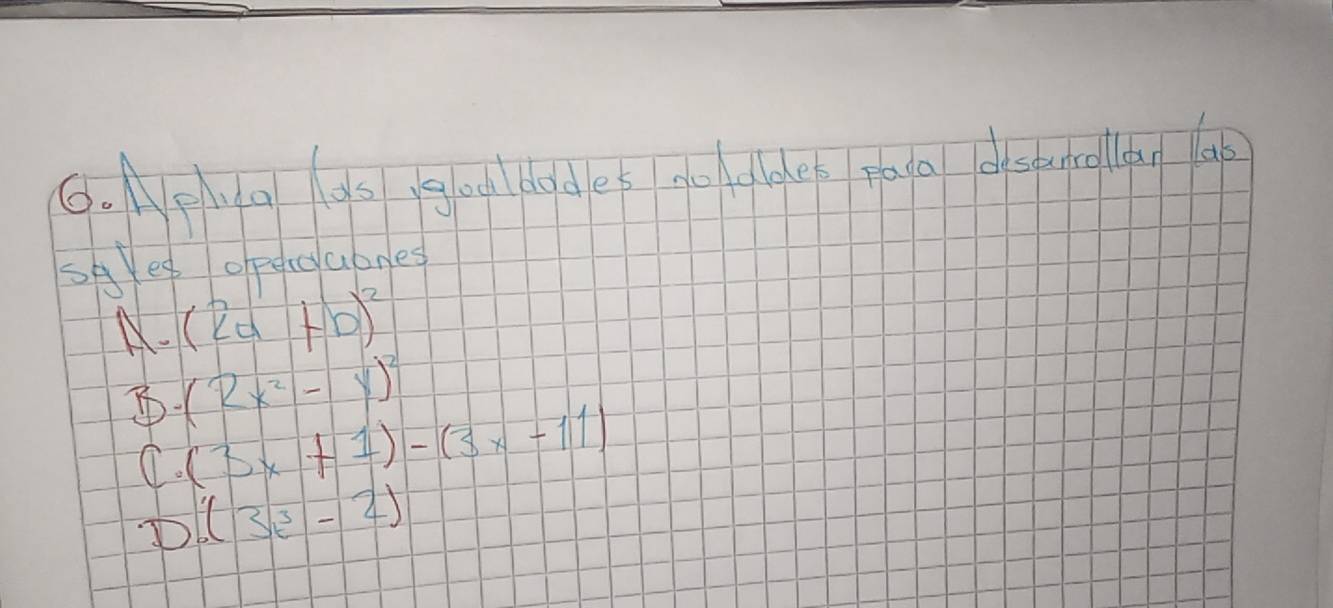 6. Aplica las igualdades notables para desarrollar las
sgtes operaciones
A. (2a + b)²
B. (2x² - y)²
C. (3x + 1) - (3x - 11)
D. (3x³ - 2)